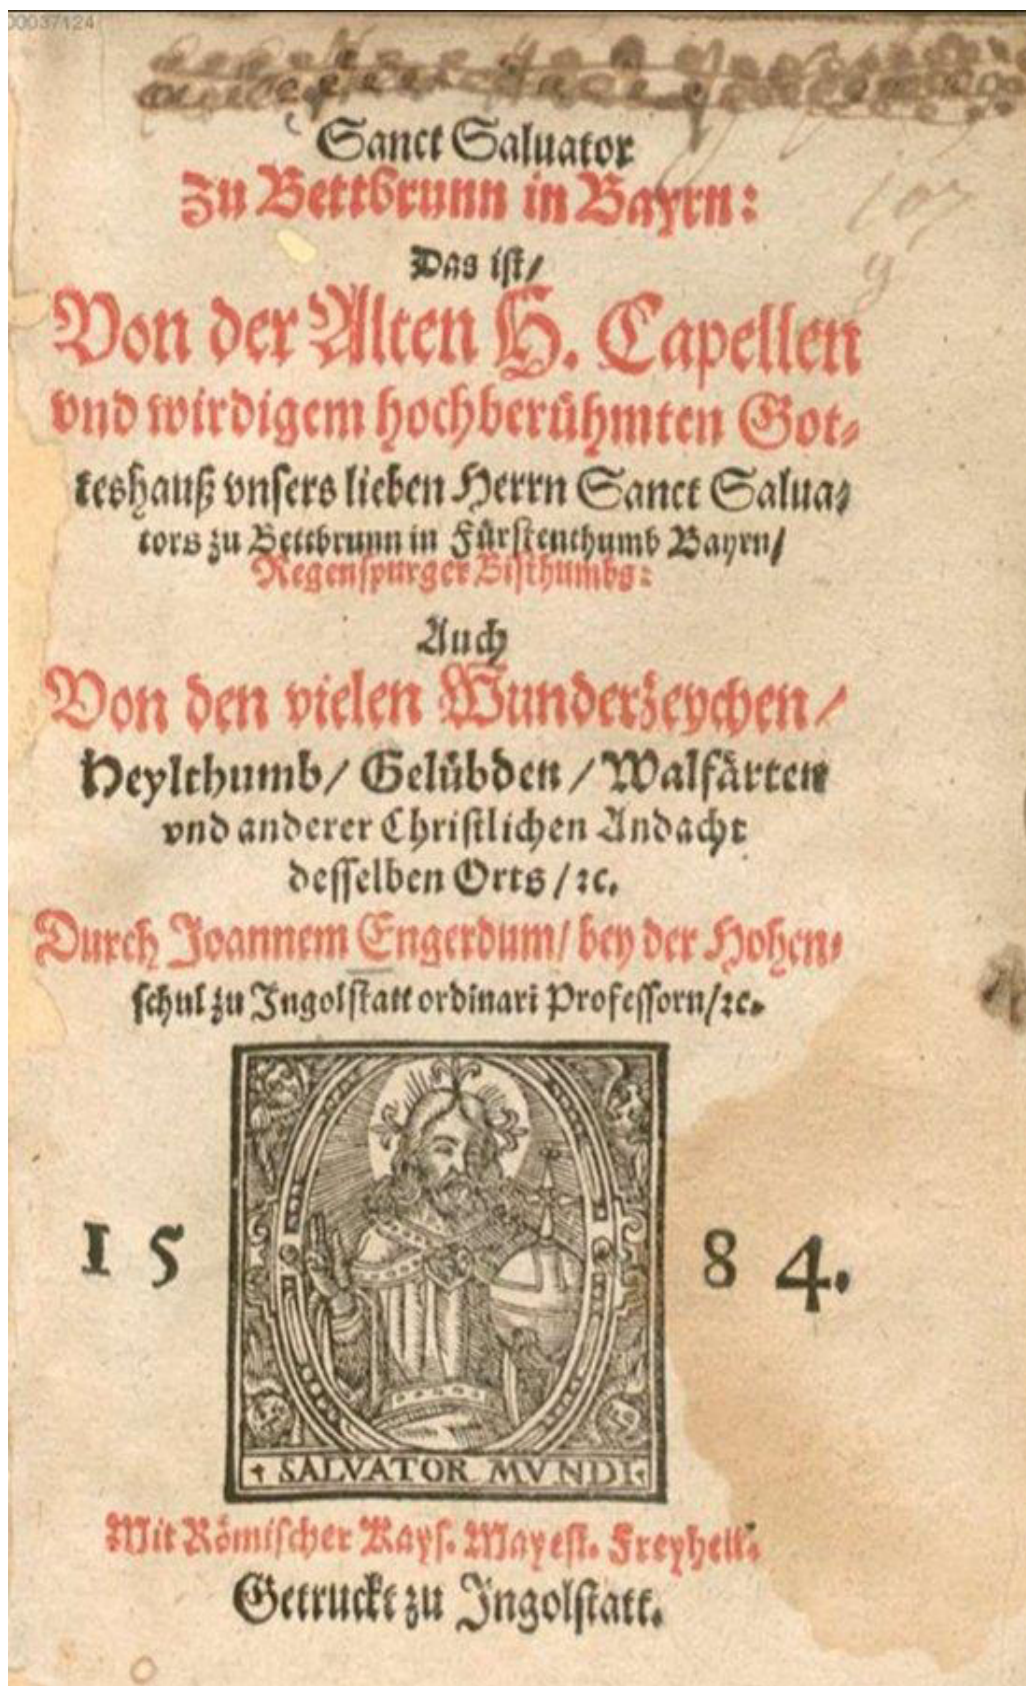 00037124
Sanct Saluator
zu Bettbrunn in Bayrn:
Das ist/
Von der Alten H. Capellen
vnd wirdigem hochberühmten Got-
teshauß vnsers lieben Herrn Sanct Salua-
tors zu Bettbrunn in Fürstenthumb Bayrn/
Regenspurger Bisthumbs:
Auch
Von den vielen Wunderzeychen/
Heylthumb/ Gelübden/ Walfärten
vnd anderer Christlichen Andacht
desselben Orts/ ꝛc.
Durch Joannem Engerdum/ bey der Hohen-
schul zu Ingolstatt ordinari Professorn/ꝛc.
15 84.
SALVATOR MVNDI
Mit Römischer Kays. Mayest. Freyheit.
Getruckt zu Ingolstatt.